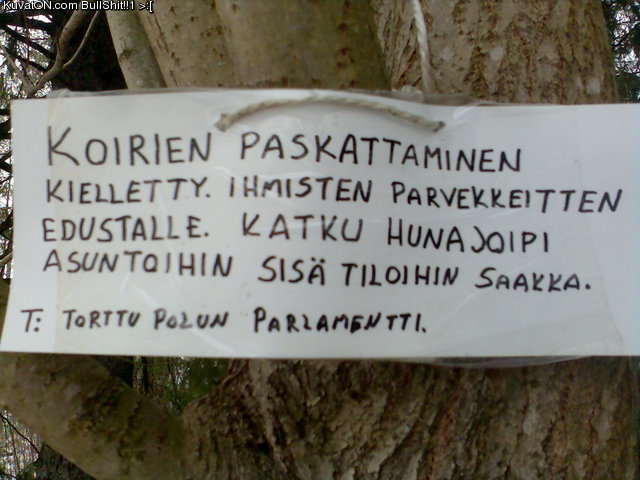 KuvatON.com BullShit!!1 >:[
KOIRIEN PASKATTAMINEN
KIELLETTY. IHMISTEN PARVEKKEITTEN
EDUSTALLE. KATKU HUNAJOIPI
ASUNTOIHIN SISÄ TILOIHIN SAAKKA.
T: TORTTU POLUN PARLAMENTTI.